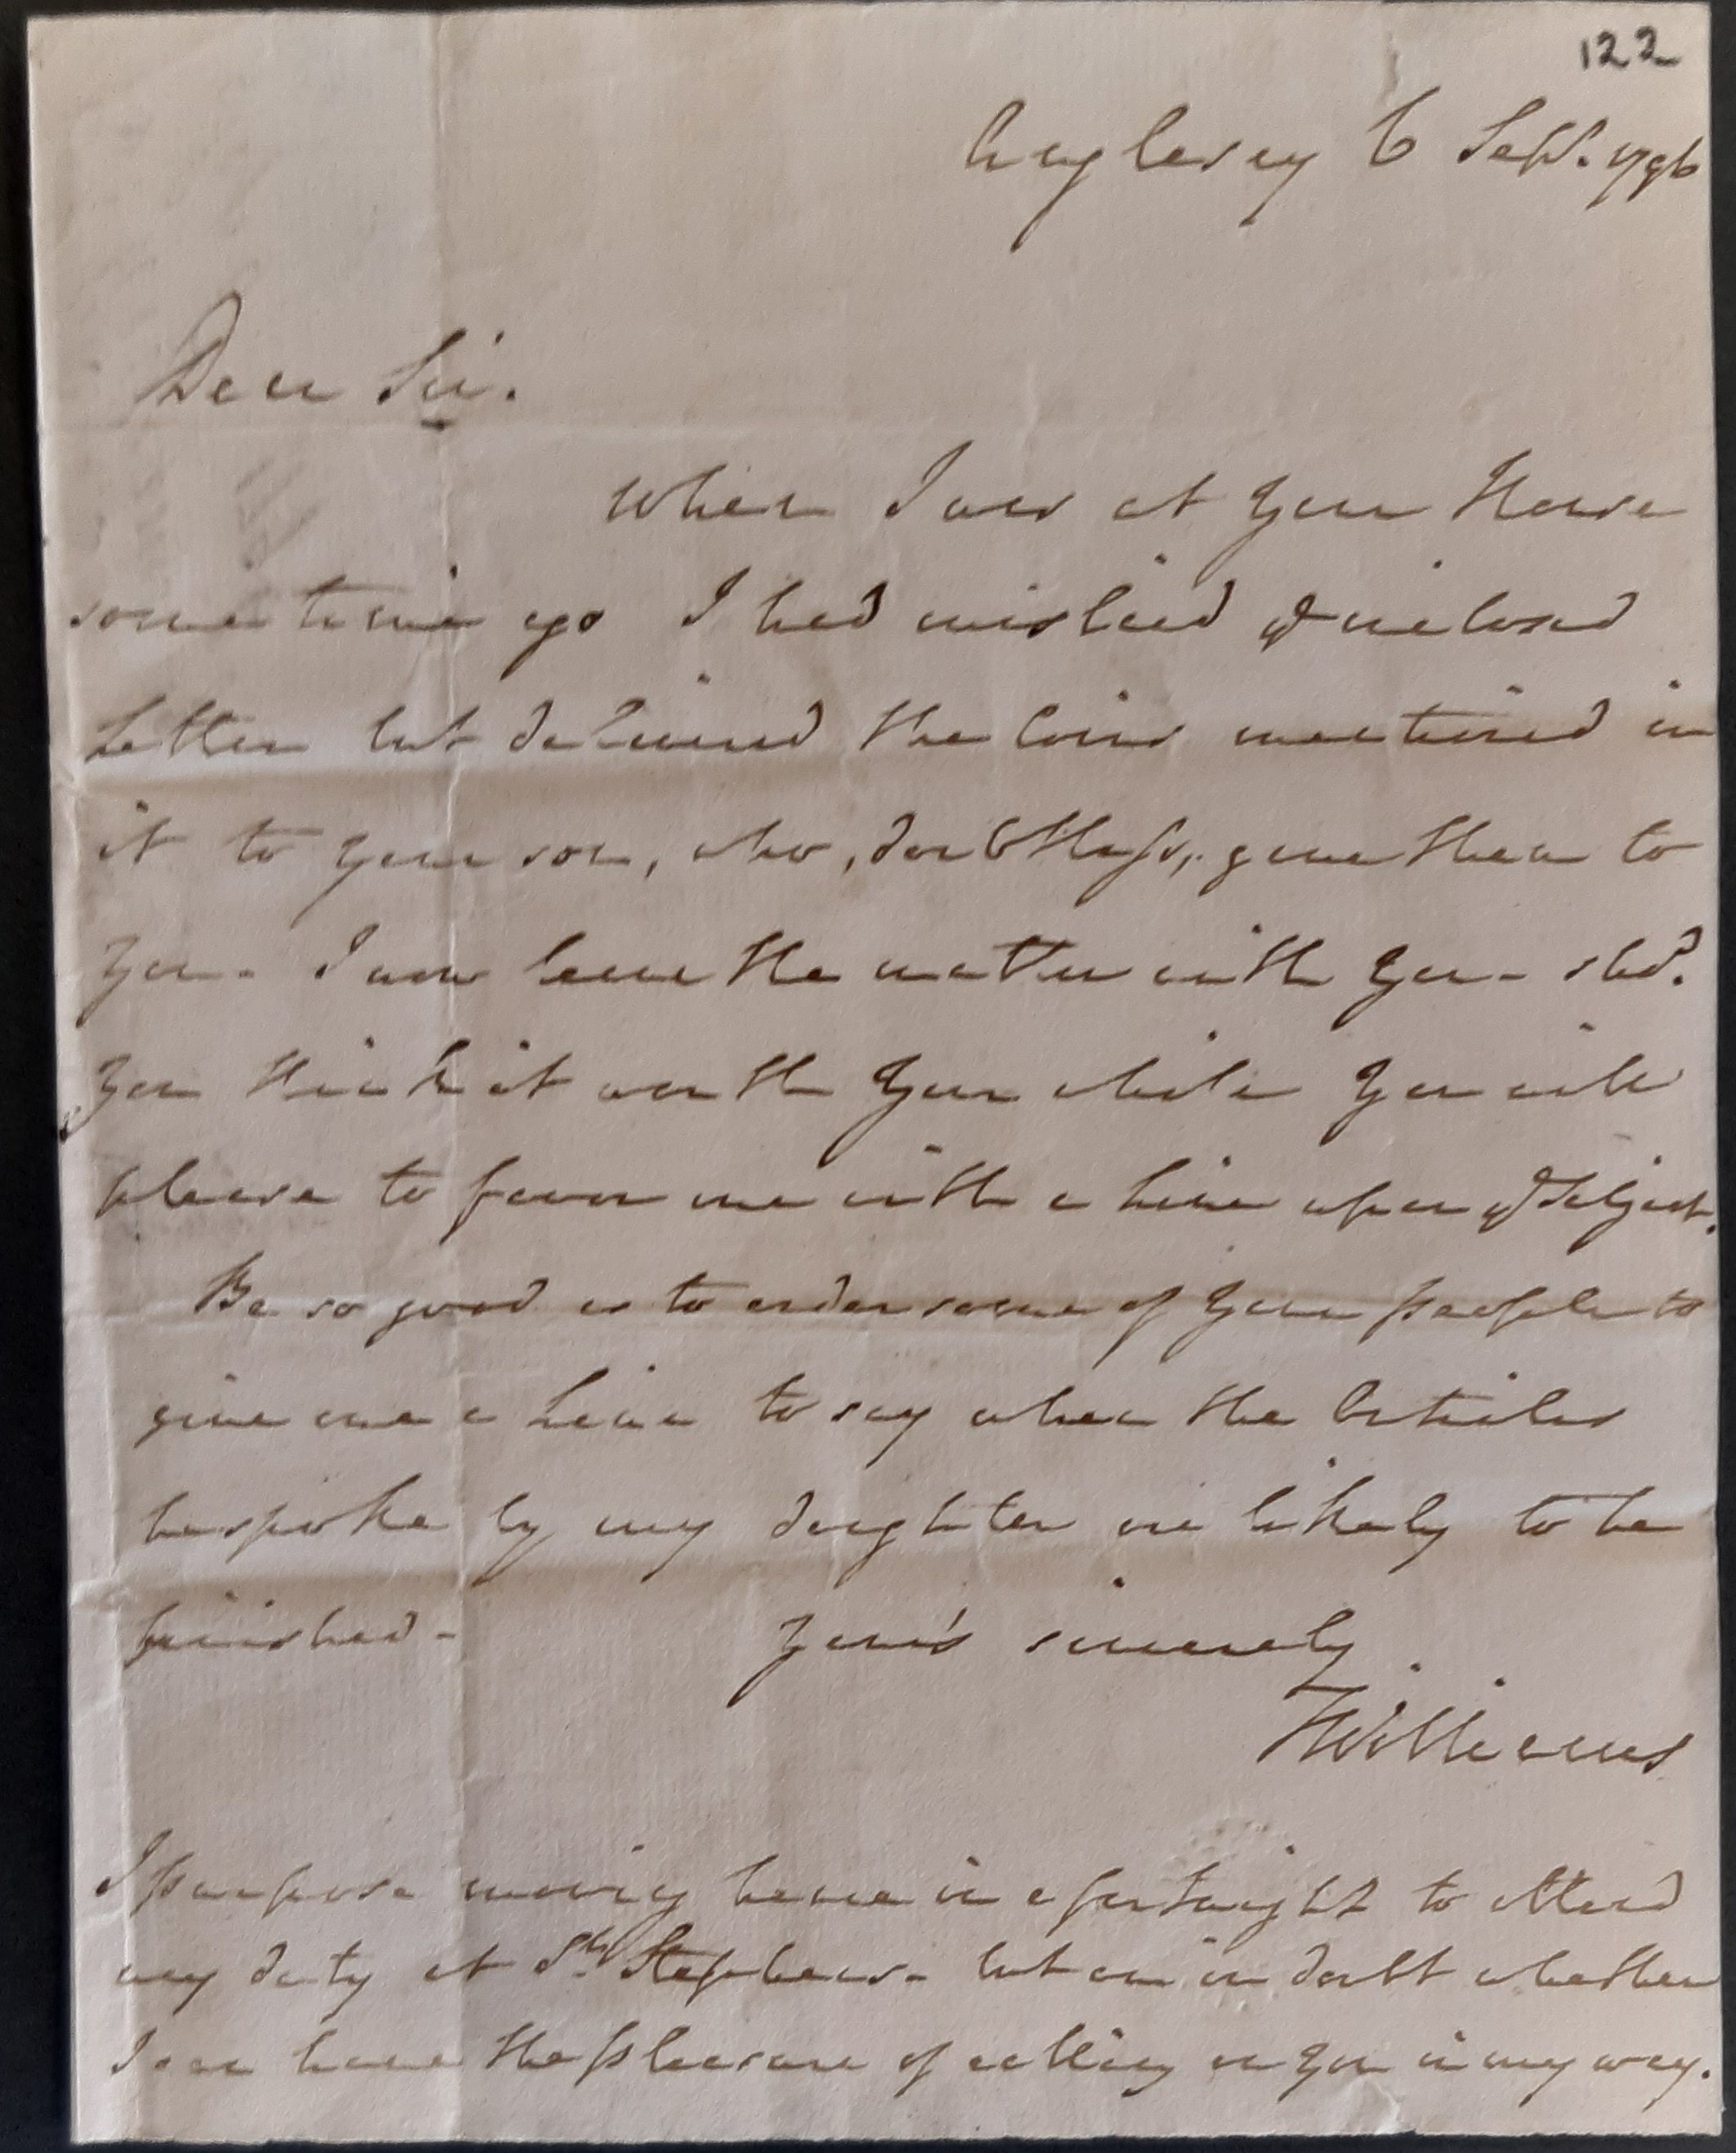 122
Anglesey 6 Sept. 1796
Dear Sir.
When I was at Your House
some time ago I had mislaid ye inclosed
Letter but delivered the Coins mentioned in
it to Your son, who, doubtless, gave them to
You - I now leave the matter with You - shd.
You think it worth Your while You will
please to favor me with a Line upon ye Subject.
Be so good as to order some of Your people to
give me a Line to say when the Articles
bespoke by my daughter are likely to be
finished -
Your's sincerely
TWilliams
I purpose moving hence in a fortnight to attend
my duty at St. Stephens - but am in doubt whether
I can have the pleasure of calling on You in my way.